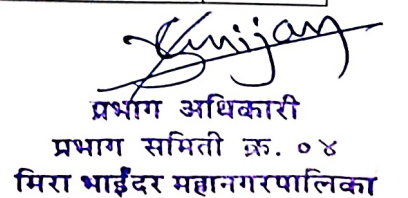 प्रभाग अधिकारी
प्रभाग समिती क्र. ०४
मिरा भाईंदर महानगरपालिका